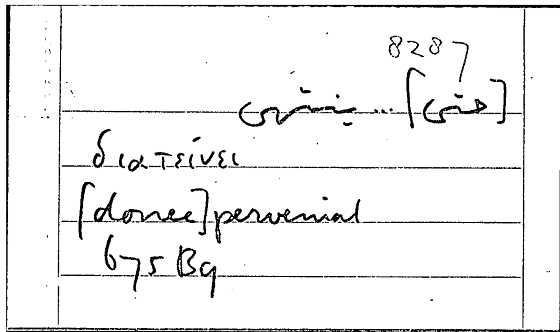 8287
[حتى] ... ينتهى
διατείνει
[donec] perveniat
675 B9